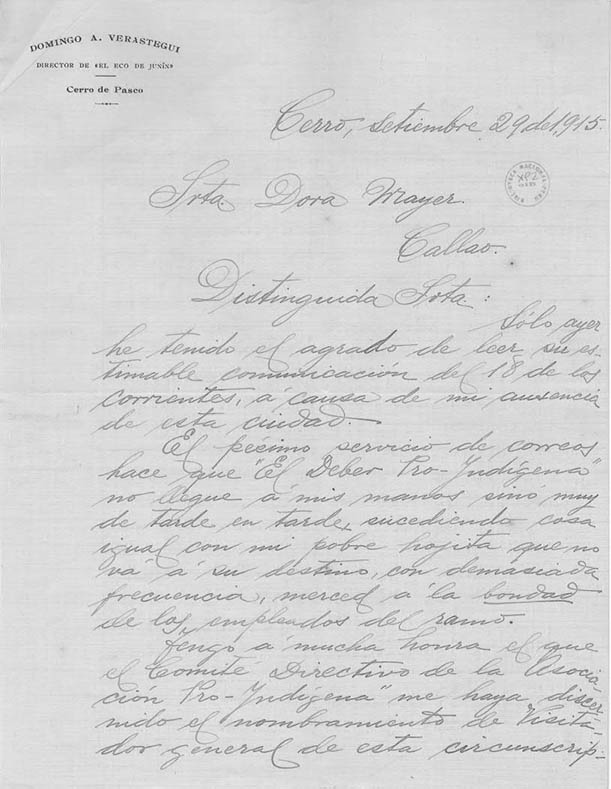 DOMINGO A. VERASTEGUI
DIRECTOR DE «EL ECO DE JUNÍN»
Cerro de Pasco
Cerro, setiembre 29 de 1,915.
Srta. Dora Mayer.
Callao.
Distinguida Srta.:
Sólo ayer
he tenido el agrado de leer su es-
timable comunicación del 18 de los
corrientes, á causa de mi ausencia
de esta ciudad.
El pécimo servicio de correos
hace que "El Deber Pro-Indígena"
no llegue á mis manos sinó muy
de tarde en tarde, sucediendo cosa
igual con mi pobre hojita que no
vá á su destino, con demasiada
frecuencia, merced á la bondad
de los empleados del ramo.
Tengo á mucha honra el que
el Comité Directivo de la "Asocia-
ción Pro-Indígena" me haya discer-
nido el nombramiento de "Visita-
dor general de esta circunscrip-
BIBLIOTECA NACIONAL